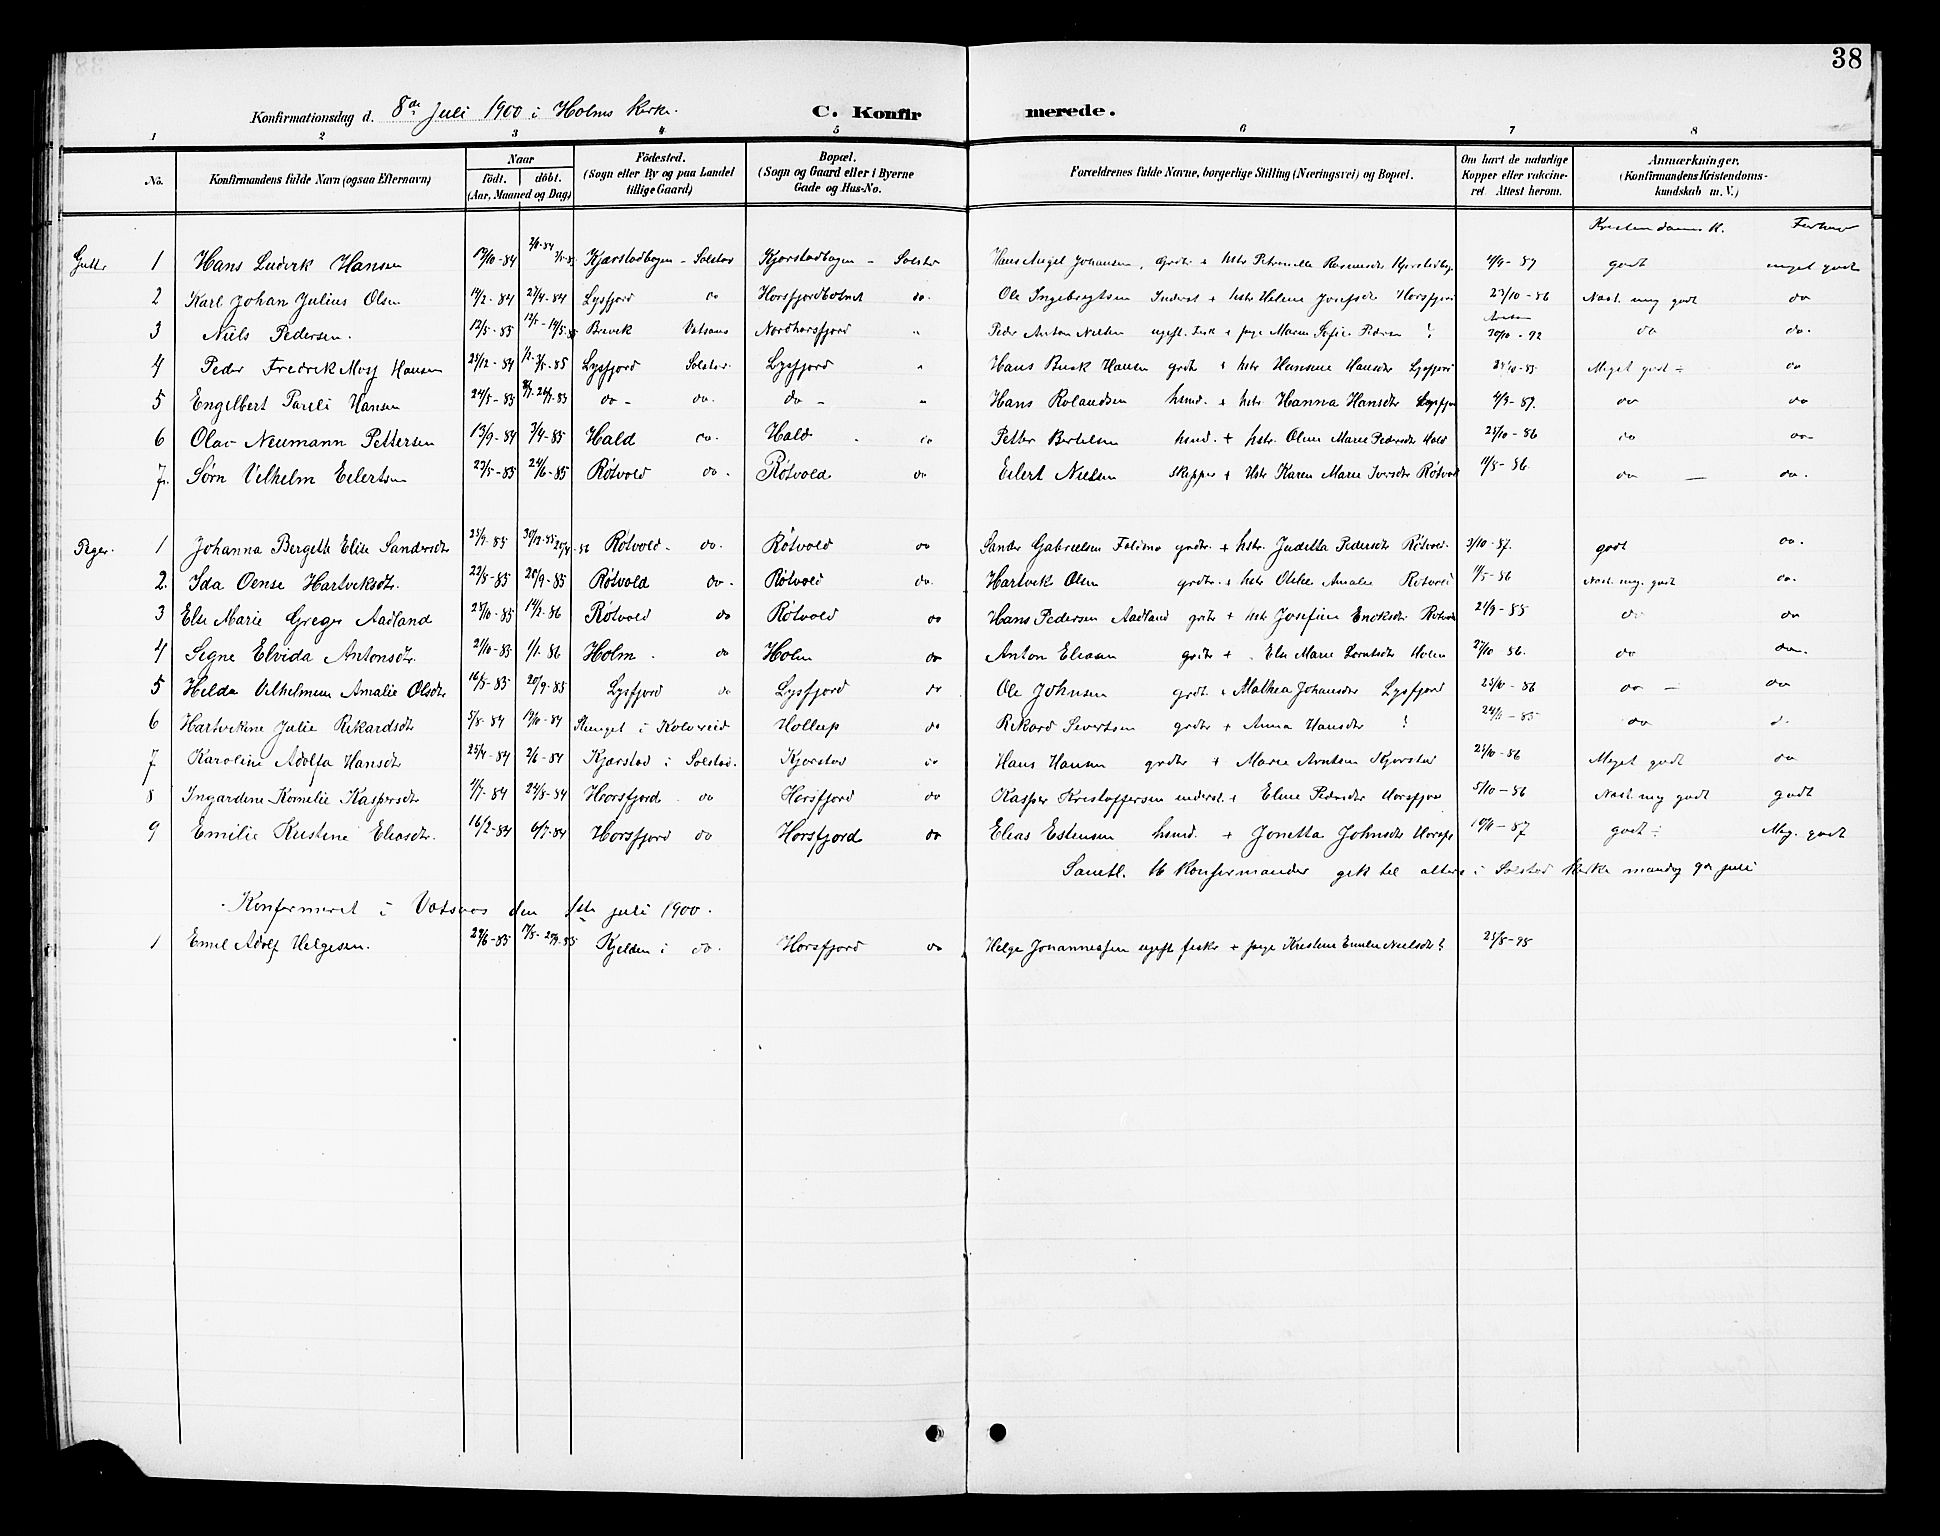 38
Konfirmationsdag d. 8de Juli 1900 i Holms Kirke.
C. Konfirmerede.
1 2 3 4 5 6 7 8
No. Konfirmandens fulde Navn (ogsaa Efternavn) Naar født. døbt. (Aar, Maaned og Dag) Födested. (Sogn eller By og paa Landet tillige Gaard) Bopæl. (Sogn og Gaard eller i Byerne Gade og Hus-No. Forældrenes fulde Navne, borgerlige Stilling (Næringsvei) og Bopæl. Om havt de naturlige Kopper eller vakcineret Attest herom. Anmærkninger. (Konfirmandens Kristendomskundskab m. V.)
Kristendoms K.
Gutter 1 Hans Ludvik Hansen 12/10-84 Kjærstadbogen - Solstad Kjærstadbogen - Solstad Hans Angel Johansen, grdbr + hstr Petronelle Rasmusdtr 4/9-87 godt meget godt
2 Karl Johan Julius Olsen 14/2-84 27/4-84 Lysfjord do Horsfjordbotnet do. Ole Ingebrigtsen Inderst + hstr Helene Josefsdtr Horsfjord 23/10-86 Nast. meg godt do
3 Niels Pedersen. 12/5-85 Brevik Vatsaas Nordhorsfjord " Peder Anton Nielsen ugift. fisk + pige Maren Sofie Pedersen ? 20/10-92 do do.
4 Peder Fredrik Moy Hansen 25/12-84 Lysfjord Solstad. Lysfjord " Hans Busk Hansen grdbr + hstr Hansine Hansdtr Lysfjord 24/10-85 Meget godt ÷ do
5 Engelbert Pareli Hansen 24/5-85 do - do. do - " Hans Rolandsen hsmd. + hstr Hanna Hansdtr Lysfjor 4/9-87. do do
6 Olav Neumann Pettersen 13/9-84 3/4-85 Hald do. Hald - do Petter Bertelsen hsmd. + hstr. Oline Marie Pedersdtr Hald 25/10-86 do do-
7. Sørn Vilhelm Eilertsen 23/5-85 24/6-85 Røtvold do. Røtvold do Eilert Nielsen Skipper + Hstr Karen Marie Iversdtr Røtvold 11/5-86. do — do.
Piger. 1 Johanna Bergette Elise Sandersdtr 25/9-85 Røtvold - do. Røtvold do Sander Gabrielsen grdbr. + hstr. Juditta Pedersdtr Røtvold. 3/10-87. godt do.
2. Ida Oense Hartviksdtr. 22/5-85 20/9-85 Røtvold do. Røtvold do. Hartvik Olsen grdbr. + hstr Amalie Røtvold 11/5-86 Nast. meg. godt do.
3 Else Marie Greger Aadland 28/10-85 14/2-86 Røtvold do Røtvold do Hans Pedersen Aadland grdbr + hstr Josefine Enoksdtr Røtvold 21/9-85 do do
4 Signe Elvida Antonsdtr. 21/10-85 1/1-86 Holm - do Holm do Anton Eliasen grdbr + Else Marie Lorntsdtr Holm 27/10-86. do do-
5 Hilda Vilhelmine Amalie Olsdtr 16/5-85 20/9-85 Lysfjord do Lysfjord do Ole Johnsen grdbr. + Mathea Johansdtr Lysfjord 25/10-86 do - do
6 Hartvikine Julie Rikardsdtr 5/8-84 12/10-84 i Kolvereid Hollup do Rikard Sivertsen grdbr + Anna Hansdtr ? 24/11-85 do d.
7 Karoline Adolfa Hansdtr 25/4-84 2/6-84 Kjærstad i Solstad. Kjærstad do Hans Hansen grdbr + Maren Arntsen Kjærstad 25/10-86 Meget godt do
8 Ingardine Kornelie Kaspersdtr 11/7-84 24/8-84 Horsfjord do Horsfjord do Kasper Kristoffersen inderst. + Eline Pedersdtr Horsfjor 5/10-86 Nast. meg godt godt
9 Emilie Kristine Eliasdtr. 16/2-84 6/7-84 Horsfjord do Horsfjord do Elias Estensen hsmd. + Jonetta Johnsdtr Horsfj 10/11-87 godt ÷ Meg. godt
Samtl. 16 Konfirmander gik til alters i Solstad Kirke mandag 9de juli
Konfirmeret i Vatsaas den 1ste juli 1900.
1 Emil Adolf Helgesen. 29/6-85 Kjelden i do. Horsfjord do Helge Johannessen ugift fisker + pige Kristine Emilie Nielsdtr ? 25/8-98